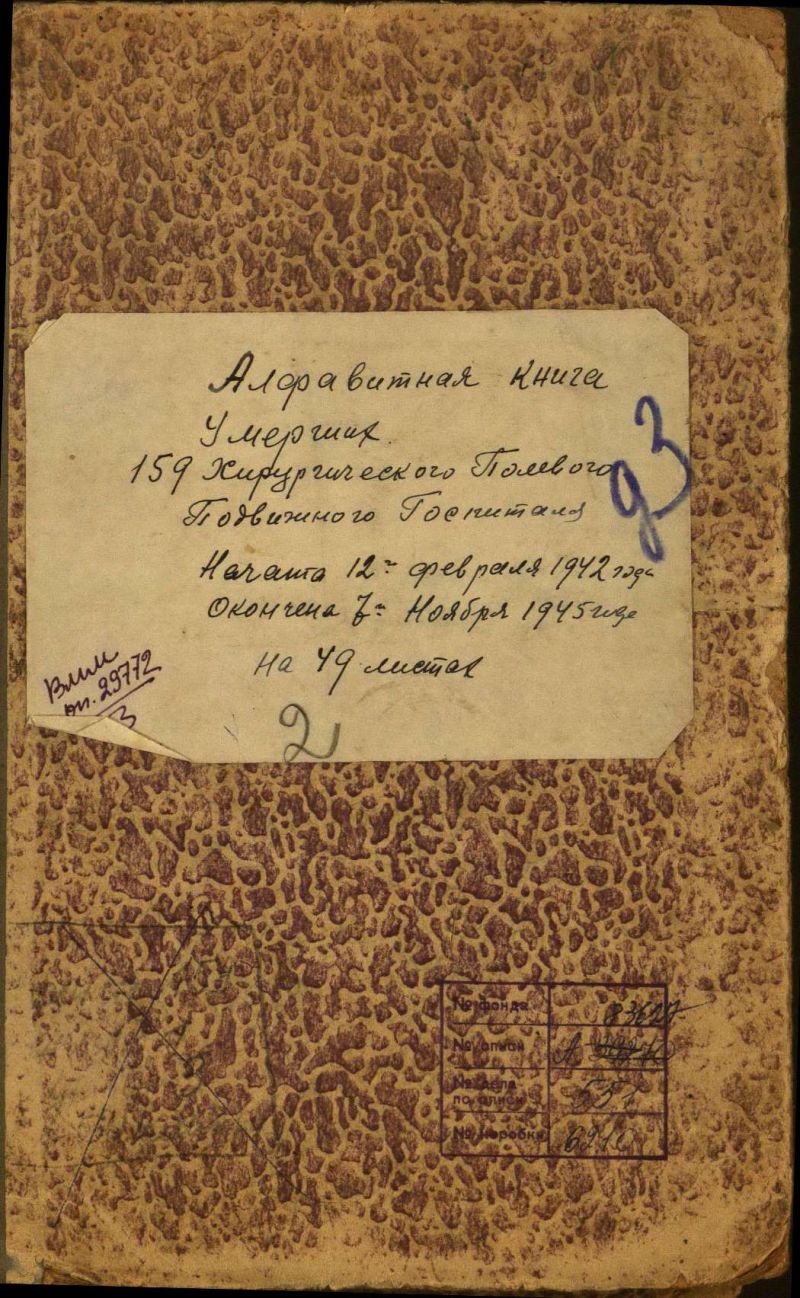 Алфавитная книга
Умерших.
159 Хирургического Полевого
Подвижного Госпиталя
93
Начата 12го февраля 1942 года
Окончена 7го Ноября 1945 года
на 49 листах
ВММ
оп. 29772
3
2
№ фонда 83627
№ описи А
№ дела
по описи 551
№ коробки